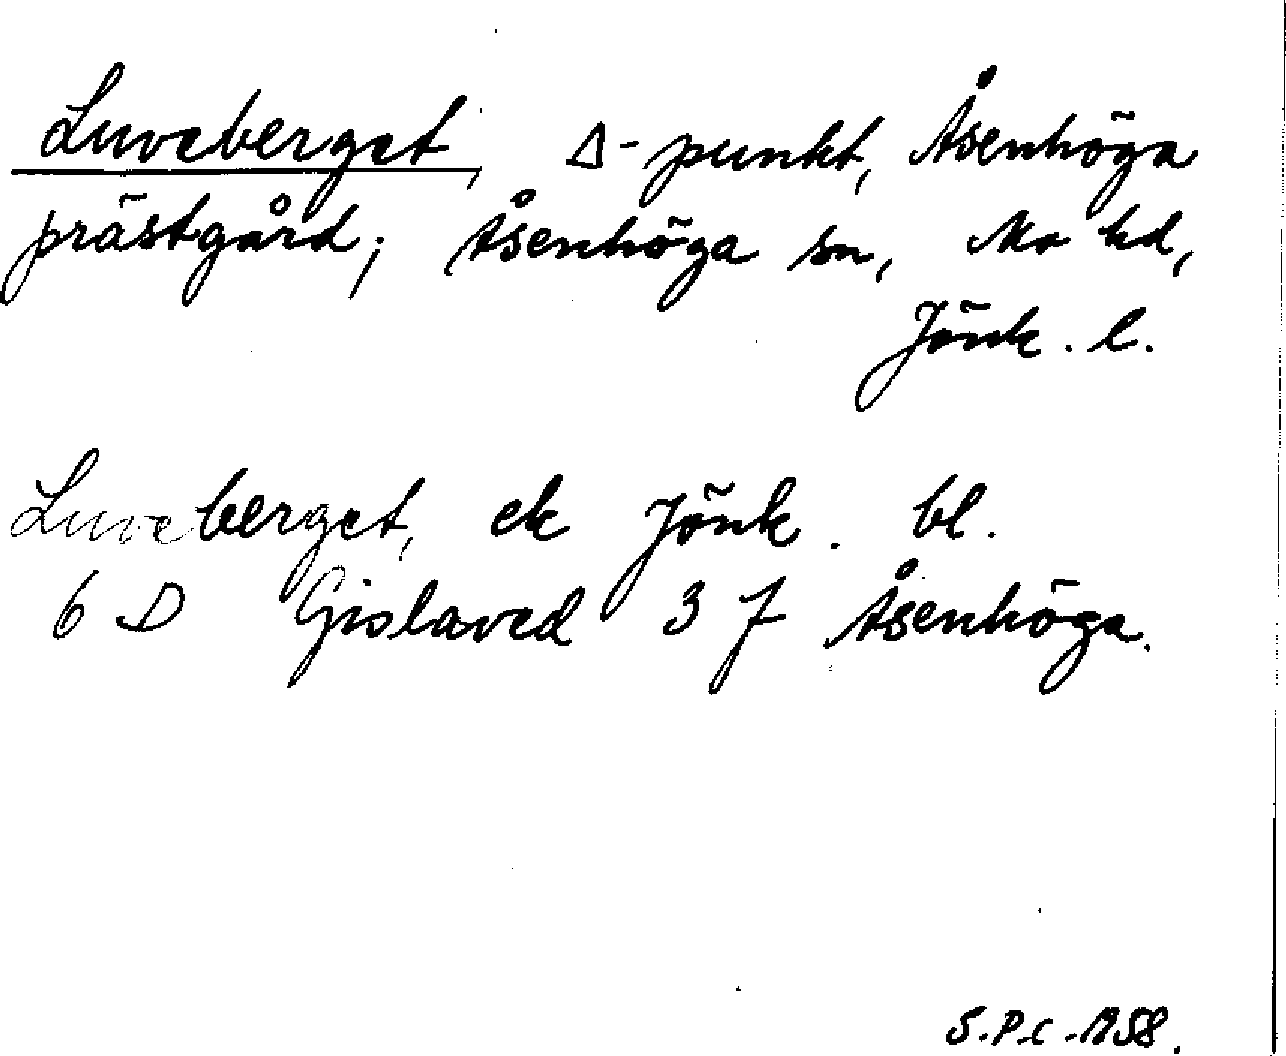 Luveberget, Δ-punkt, Åsenhöga
prästgård; Åsenhöga sn, Mo hd,
Jönk. l.
Luveberget, ek Jönk. bl.
6 D Gislaved 3 J Åsenhöga.
S.P.C. 1958.